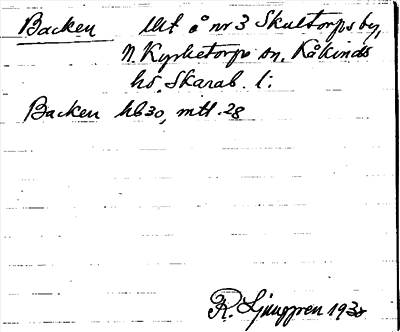 Backen Utt å nr 3 Skultorps by,
N. Kyrketorp sn. Kåkinds
hd. Skarab. l.
Backen hb 30, mtl. 28
R. Ljunggren 1930